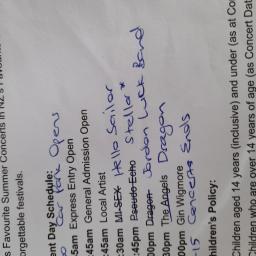 s Favourite Summer Concerts in NZ's Favourit
orgettable festivals.
ent Day Schedule:
Car Park Opens
5am Express Entry Open
45am General Admission Open
45am Local Artist
30am MI-SEX Hello Sailor
45pm Pseudo Echo Stellar*
00pm Dragon Jordan Luck Band
30pm The Angels Dragon
00pm Gin Wigmore
15 Concert Ends
hildren's Policy:
Children aged 14 years (inclusive) and under (as at Co
Children who are over 14 years of age (as Concert Dat